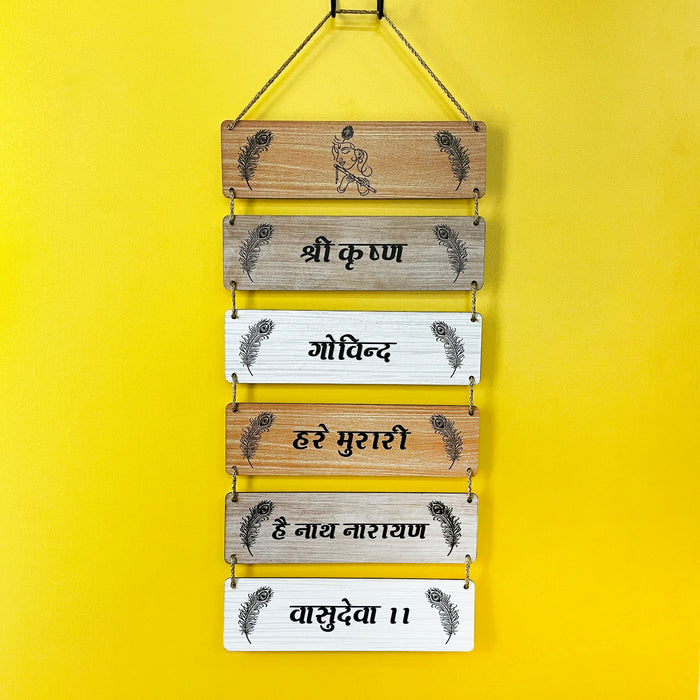 श्री कृष्ण
गोविन्द
हरे मुरारी
है नाथ नारायण
वासुदेवा ।।